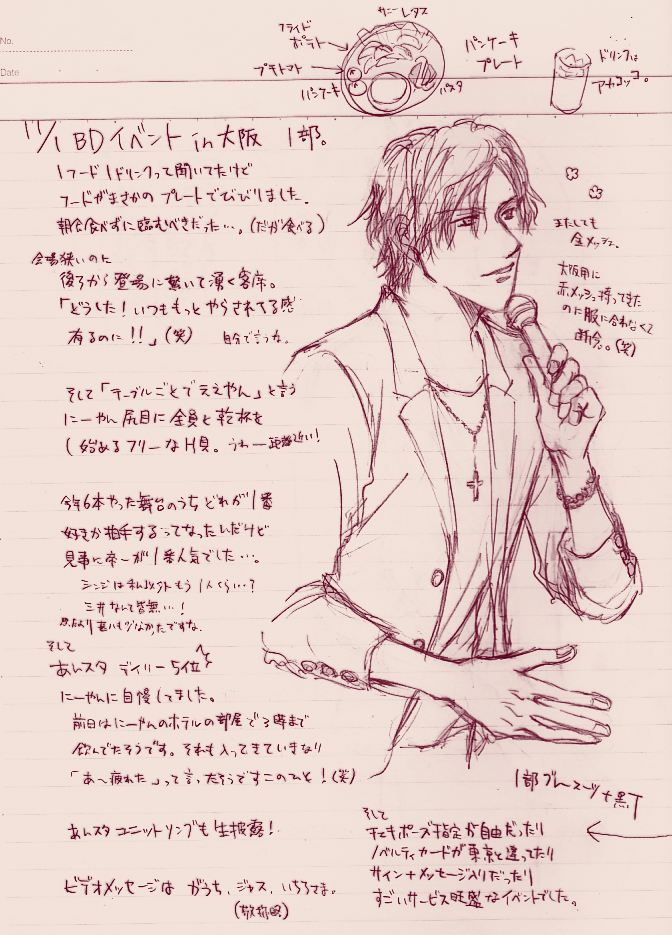 No.
Date
サニーレタス
フライド
ポテト
プチトマト
パンケーキ
パスタ
パンケーキ
プレート
ドリンクは
アイスココ。
11/1 BDイベント in 大阪 1部。
1フード1ドリンクって聞いてたけど
フードがまさかのプレートでびびりました。
朝食食べずに臨むべきだった…。(だが食べる)
会場狭いのに
後ろから登場に驚いて湧く客席。
「どうした!いつももっとやらされてる感
有るのに!!」(笑) 自分で言うな。
そして「テーブルごとでええやん」と言う
にーやん尻目に全員と乾杯を
始めるフリーな
うわー距離近い!
今年6本やった舞台のうちどれが1番
好きか拍手するってなったんだけど
見事に 1番人気でした…。
シンジは私以外もう1人くらい…?
三井なんて皆無…!
思ったより
そして
あんスタ デイリー5位
にーやんに自慢してました。
前日はにーやんのホテルの部屋で3時まで
飲んでたそうです。それも入ってきていきなり
「あ〜疲れた」って言ったそうですこのひと!(笑)
あんスタユニットソングも生披露!
ビデオメッセージは がうち、ジャス、いちろさま。
(敬称略)
またしても
金メッシュ。
大阪用に
赤メッシュ持ってきた
のに服に合わなくて
断念。(笑)
1部 ブルースーツ+黒T
そして
チェキポーズ指定が自由だったり
ノベルティカードが東京と違ってたり
サイン+メッセージ入りだったり
すごいサービス旺盛なイベントでした。